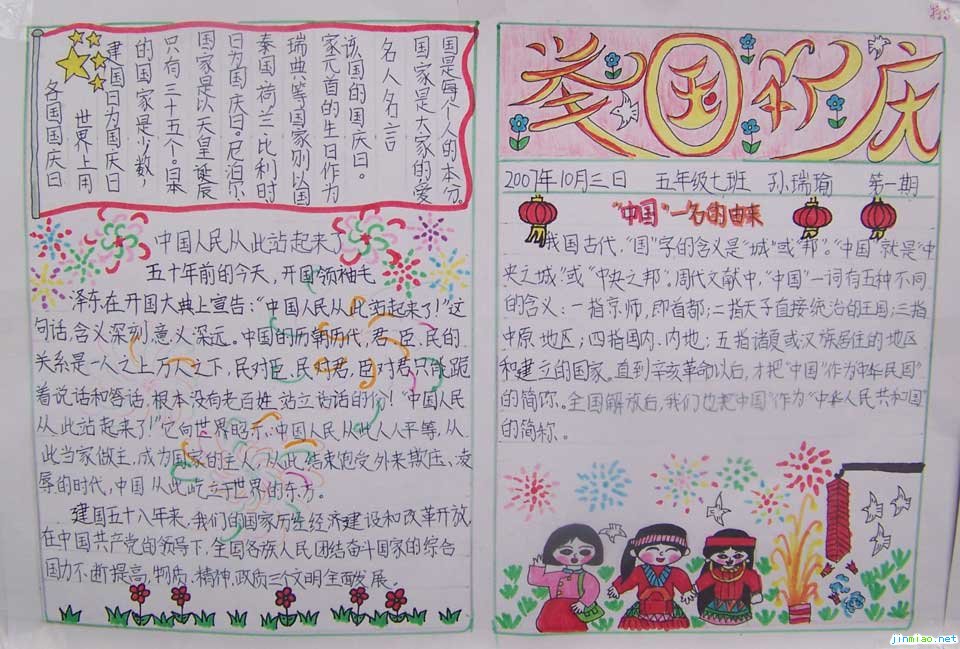 各国国庆日
世界上用
建国日为国庆日
的国家是少数,
只有三十五个。日本
国家是以天皇诞辰
日为国庆日。尼泊尔
泰国荷兰·比利时
瑞典等国家则以国
家元首的生日作为
该国的国庆日。
名人名言
国家是大家的爱
国是每个人的本分。
中国人民从此站起来了
五十年前的今天,开国领袖毛
泽东在开国大典上宣告:“中国人民从此站起来了!”这
句话,含义深刻,意义深远。中国的历朝历代,君、臣、民的
关系是一人之上万人之下,民对臣、民对君,臣对君只能跪
着说话和答话,根本没有老百姓站立说话的份!“中国人民
从此站起来了!”它向世界昭示,中国人民从此人人平等,从
此当家做主,成为国家的主人,从此,结束饱受外来欺压、凌
辱的时代,中国从此屹立于世界的东方。
建国五十八年来,我们的国家历经经济建设和改革开放,
在中国共产党的领导下,全国各族人民团结奋斗国家的综合
国力不断提高,物质、精神、政质三个文明全面发展。
举国欢庆
2007年10月三日 五年级七班 孙瑞瑜 第一期
“中国”一名的由来
我国古代,“国”字的含义是“城”或“邦”。“中国”就是“中
央之城”或“中央之邦”。周代文献中,“中国”一词有五种不同
的含义:一指京师,即首都;二指天子直接统治的王国;三指
中原地区;四指国内、内地;五指诸夏或汉族居住的地区
和建立的国家。直到辛亥革命以后,才把“中国”作为“中华民国”
的简称。全国解放后,我们也把“中国”作为“中华人民共和国”
的简称。
jinmiao.net